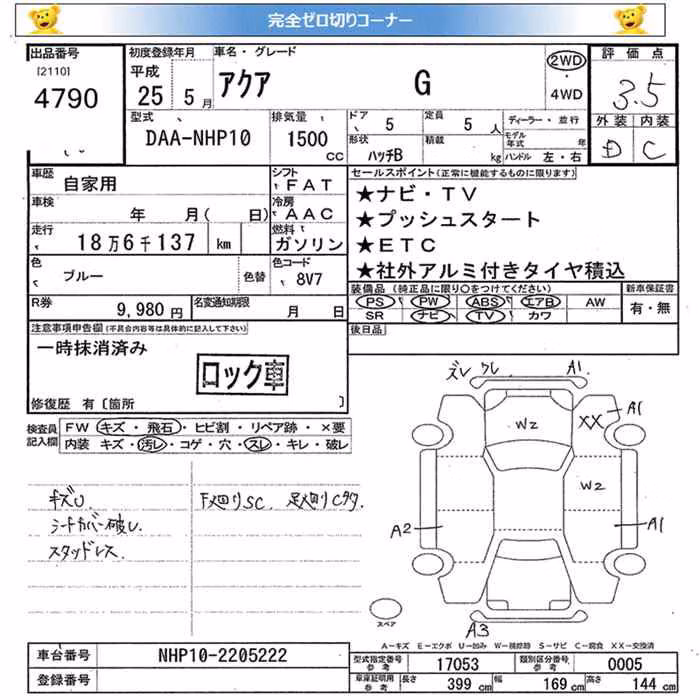 完全ゼロ切りコーナー
出品番号
[2110]
4790
初度登録年月
平成
25 5月
車名・グレード
アクア G
2WD
・
4WD
評価点
3.5
外装 内装
D C
型式
DAA-NHP10
排気量
1500
CC
ドア
5
定員
5 人
形状
ハッチB
積載
kg
ディーラー・並行
モデル
年式 年
ハンドル 左・右
車歴
自家用
シフト
FAT
車検
年 月( 日)
冷房
AAC
走行
18万6千137 km
燃料
ガソリン
色
ブルー
色替
色コード
8V7
セールスポイント(正常に機能するものに限ります)
★ナビ・TV
★プッシュスタート
★ETC
★社外アルミ付きタイヤ積込
R券
9,980 円
名変通知期限
月 日
装備品(純正品に限り○をつけてください)
PS PW ABS エアB AW
SR ナビ TV カワ
新車保証書
有・無
後日品
注意事項申告欄(不具合内容等は具体的に記入して下さい)
一時抹消済み
ロック車
修復歴 有〔箇所 〕
検査員
記入欄
FW キズ・飛石・ヒビ割・リペア跡・×要
内装 キズ・汚レ・コゲ・穴・スレ・キレ・破レ
キズU
シートカバー破レ
スタッドレス
下廻りSC. 足廻りCタタ.
ズレ ワレ A1
W2
XX A1
W2
A2
A1
A3
スペア
A-キズ E-エクボ U-凹み W-補修跡 S-サビ C-腐食 XX-交換済
車台番号
NHP10-2205222
登録番号
型式指定番号
参考
17053
類別区分番号
参考
0005
車庫証明用
参考
長さ
399 cm
幅
169 cm
高さ
144 cm